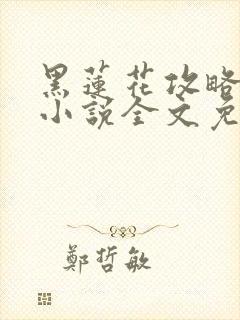 黑蓮花攻略
小說全文免
鄭哲敏